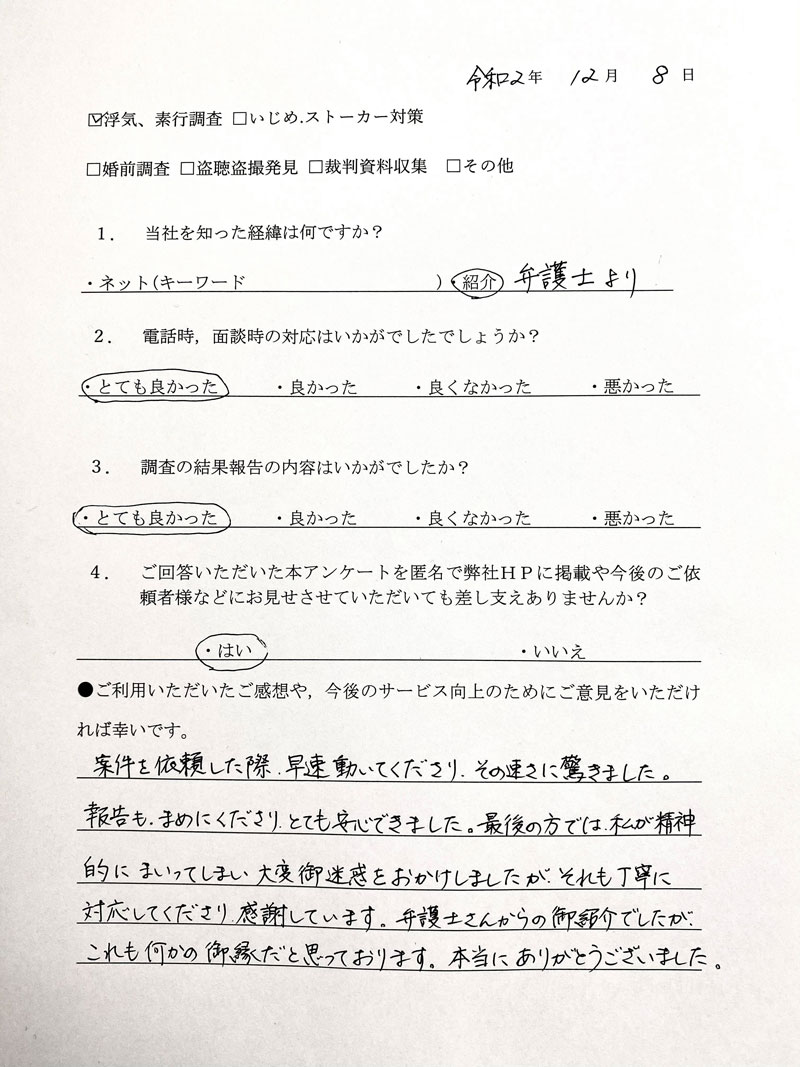 令和2年 12月 8日
☑浮気、素行調査 □いじめ.ストーカー対策
□婚前調査 □盗聴盗撮発見 □裁判資料収集 □その他
1. 当社を知った経緯は何ですか？
・ネット(キーワード )・紹介 弁護士より
2. 電話時，面談時の対応はいかがでしたでしょうか？
・とても良かった ・良かった ・良くなかった ・悪かった
3. 調査の結果報告の内容はいかがでしたか？
・とても良かった ・良かった ・良くなかった ・悪かった
4. ご回答いただいた本アンケートを匿名で弊社ＨＰに掲載や今後のご依
頼者様などにお見せさせていただいても差し支えありませんか？
・はい ・いいえ
●ご利用いただいたご感想や，今後のサービス向上のためにご意見をいただけ
れば幸いです。
案件を依頼した際、早速動いてくださり、その速さに驚きました。
報告も、まめにくださり、とても安心できました。最後の方では、私が精神
的にまいってしまい大変御迷惑をおかけしましたが、それも丁寧に
対応してくださり感謝しています。弁護士さんからの御紹介でしたが、
これも何かの御縁だと思っております。本当にありがとうございました。